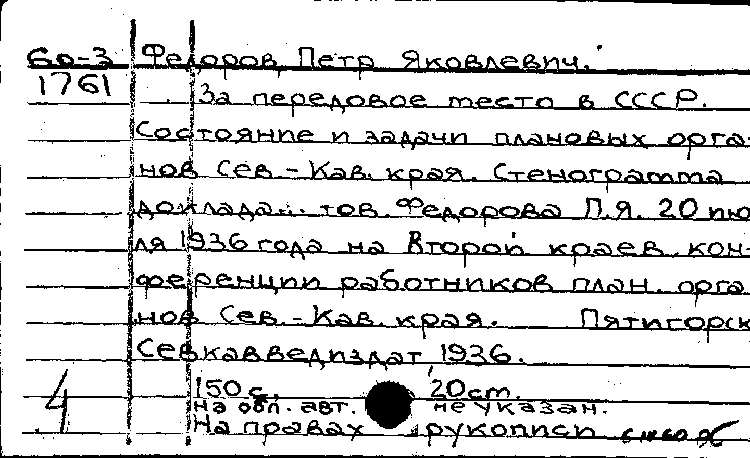 60-3 Федоров, Петр Яковлевич.
1761 За передовое место в СССР.
Состояние и задачи плановых орга-
нов Сев.-Кав. края. Стенограмма
доклада... тов. Федорова П.Я. 20 ию-
ля 1936 года на Второй краев. кон-
ференции работников план. орга-
нов Сев.-Кав. края. Пятигорск
Севкавведиздат, 1936.
4 150 с. 20 ст.
На обл. авт. не указан.
На правах рукописи